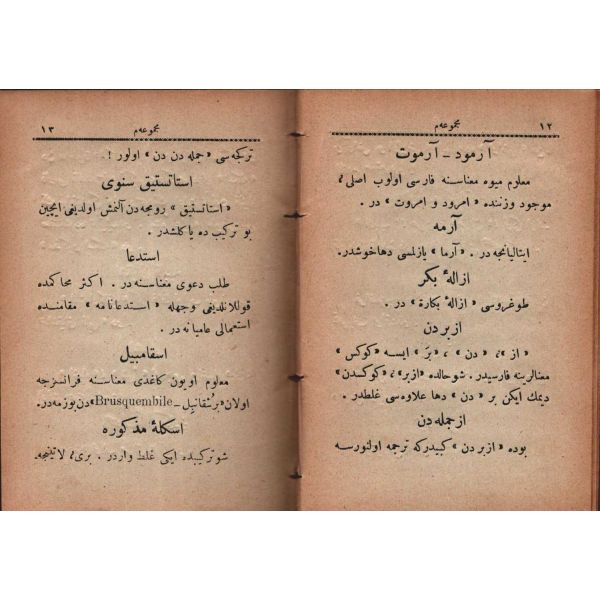 ١٢ مجموعه‌م
آرمود ــ آرموت
معلوم میوه معناسنه فارسی اولوب اصلی ؛
موجود وزننده « امرود و امروت » در .
آرمه
ایتالیانجه در . « آرما » یازلمسی دهاخوشدر.
ازالهٔ بکر
طوغروسی « ازالهٔ بکارة » در .
ازبردن
« از » ؛ « دن » ، « بَر » ایسه « کوکس »
معنالرینه فارسیدر . شوحالده « ازبر » ؛ « کوکسدن »
دیمك ایکن بر « دن » دها علاوه‌سی غلطدر .
ازجمله دن
بوده « ازبر دن » کبیدرکه ترجمه اولنورسه
مجموعه‌م ١٣
ترکجه‌سی « جمله دن دن » اولور !.
استاتستیق سنوی
« استاتستیق » رومجه‌دن آلنمش اولدیغی ایچین
بو ترکیب ده یاکلشدر .
استدعا
طلب دعوی معناسنه در . اکثر محاکمده
قوللانلدیغی وجهله « استدعانامه » مقامنده
استعمالی عامیانه در .
اسقامبیل
معلوم اویون کاغدی معناسنه فرانسزجه
اولان « برُسقانبِل ــ Brusquembile » دن بوزمه در.
اسکلهٔ مذکوره
شو ترکیبده ایکی غلط واردر . بری ؛ لاتینجه